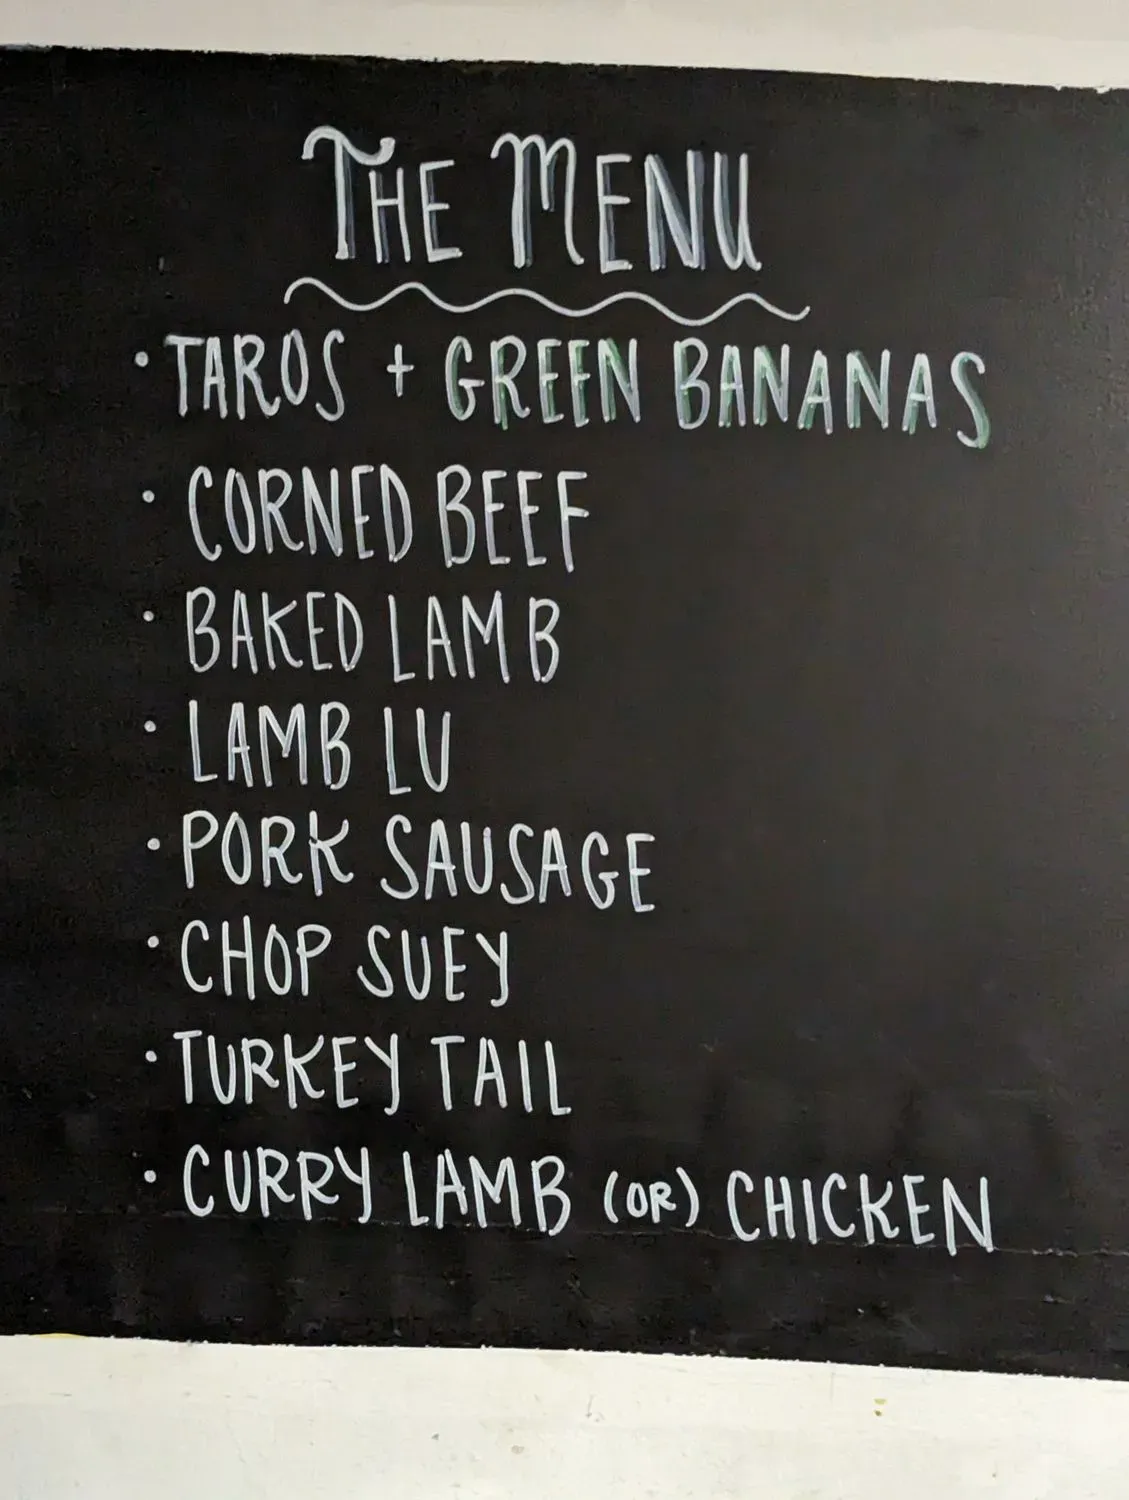 THE MENU
• TAROS + GREEN BANANAS
• CORNED BEEF
• BAKED LAMB
• LAMB LU
• PORK SAUSAGE
• CHOP SUEY
• TURKEY TAIL
• CURRY LAMB (OR) CHICKEN